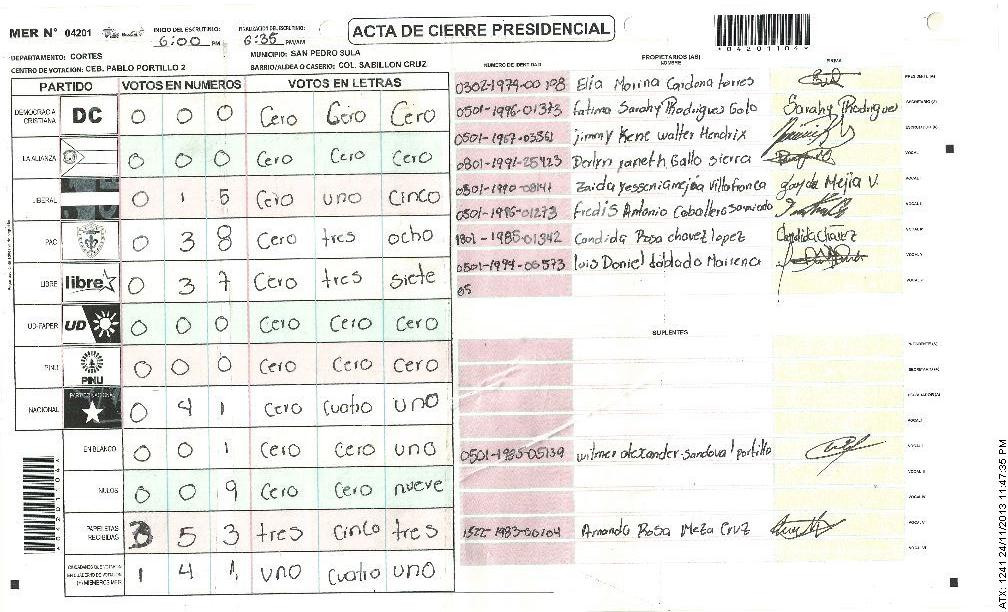 MER N° 04201
INICIO DEL ESCRUTINIO: 6:00 PM
FINALIZACION DEL ESCRUTINIO: 6:35 PM/AM
ACTA DE CIERRE PRESIDENCIAL
*04201104*
DEPARTAMENTO: CORTES
MUNICIPIO: SAN PEDRO SULA
CENTRO DE VOTACION: CEB. PABLO PORTILLO 2
BARRIO/ALDEA O CASERIO: COL. SABILLON CRUZ
PARTIDO VOTOS EN NUMEROS VOTOS EN LETRAS
DEMOCRACIA CRISTIANA DC 0 0 0 Cero Cero Cero
LA ALIANZA 0 0 0 Cero Cero Cero
LIBERAL 0 1 5 Cero uno Cinco
PAC 0 3 8 Cero tres ocho
LIBRE libre 0 3 7 Cero tres siete
UD-FAPER UD 0 0 0 Cero Cero Cero
PINU PINU 0 0 0 Cero Cero Cero
NACIONAL 0 4 1 Cero Cuatro uno
EN BLANCO 0 0 1 Cero Cero uno
NULOS 0 0 9 Cero Cero nueve
PAPELETAS RECIBIDAS 3 5 3 tres Cinco tres
1 4 1 uno Cuatro uno
NUMERO DE IDENTIDAD
PROPIETARIOS (AS)
NOMBRE
FIRMA
Elia Marina Cardona torres
0501-1996-01373 fatima Sarahy Rodrigues Sarahy Rodrigues
0501-1967-03361 jimmy Rene walter Hendrix
0801-1991-25423 Gallo sierra
Zaida yessenia mejia Villafranca Mejia V.
0501-1986-01273 fredis Antonio Caballero sarmiento
1801-1985-01342 Candida Rosa chavez lopez Candida Chavez
0501-1994-06573 luis Daniel
05
SUPLENTES
0501-1985-05139 wilmer alexander sandoval portillo
1522-1983-00104 Armando Rosa Meza Cruz
ATX: 1241 24/11/2013 11:47:35 PM